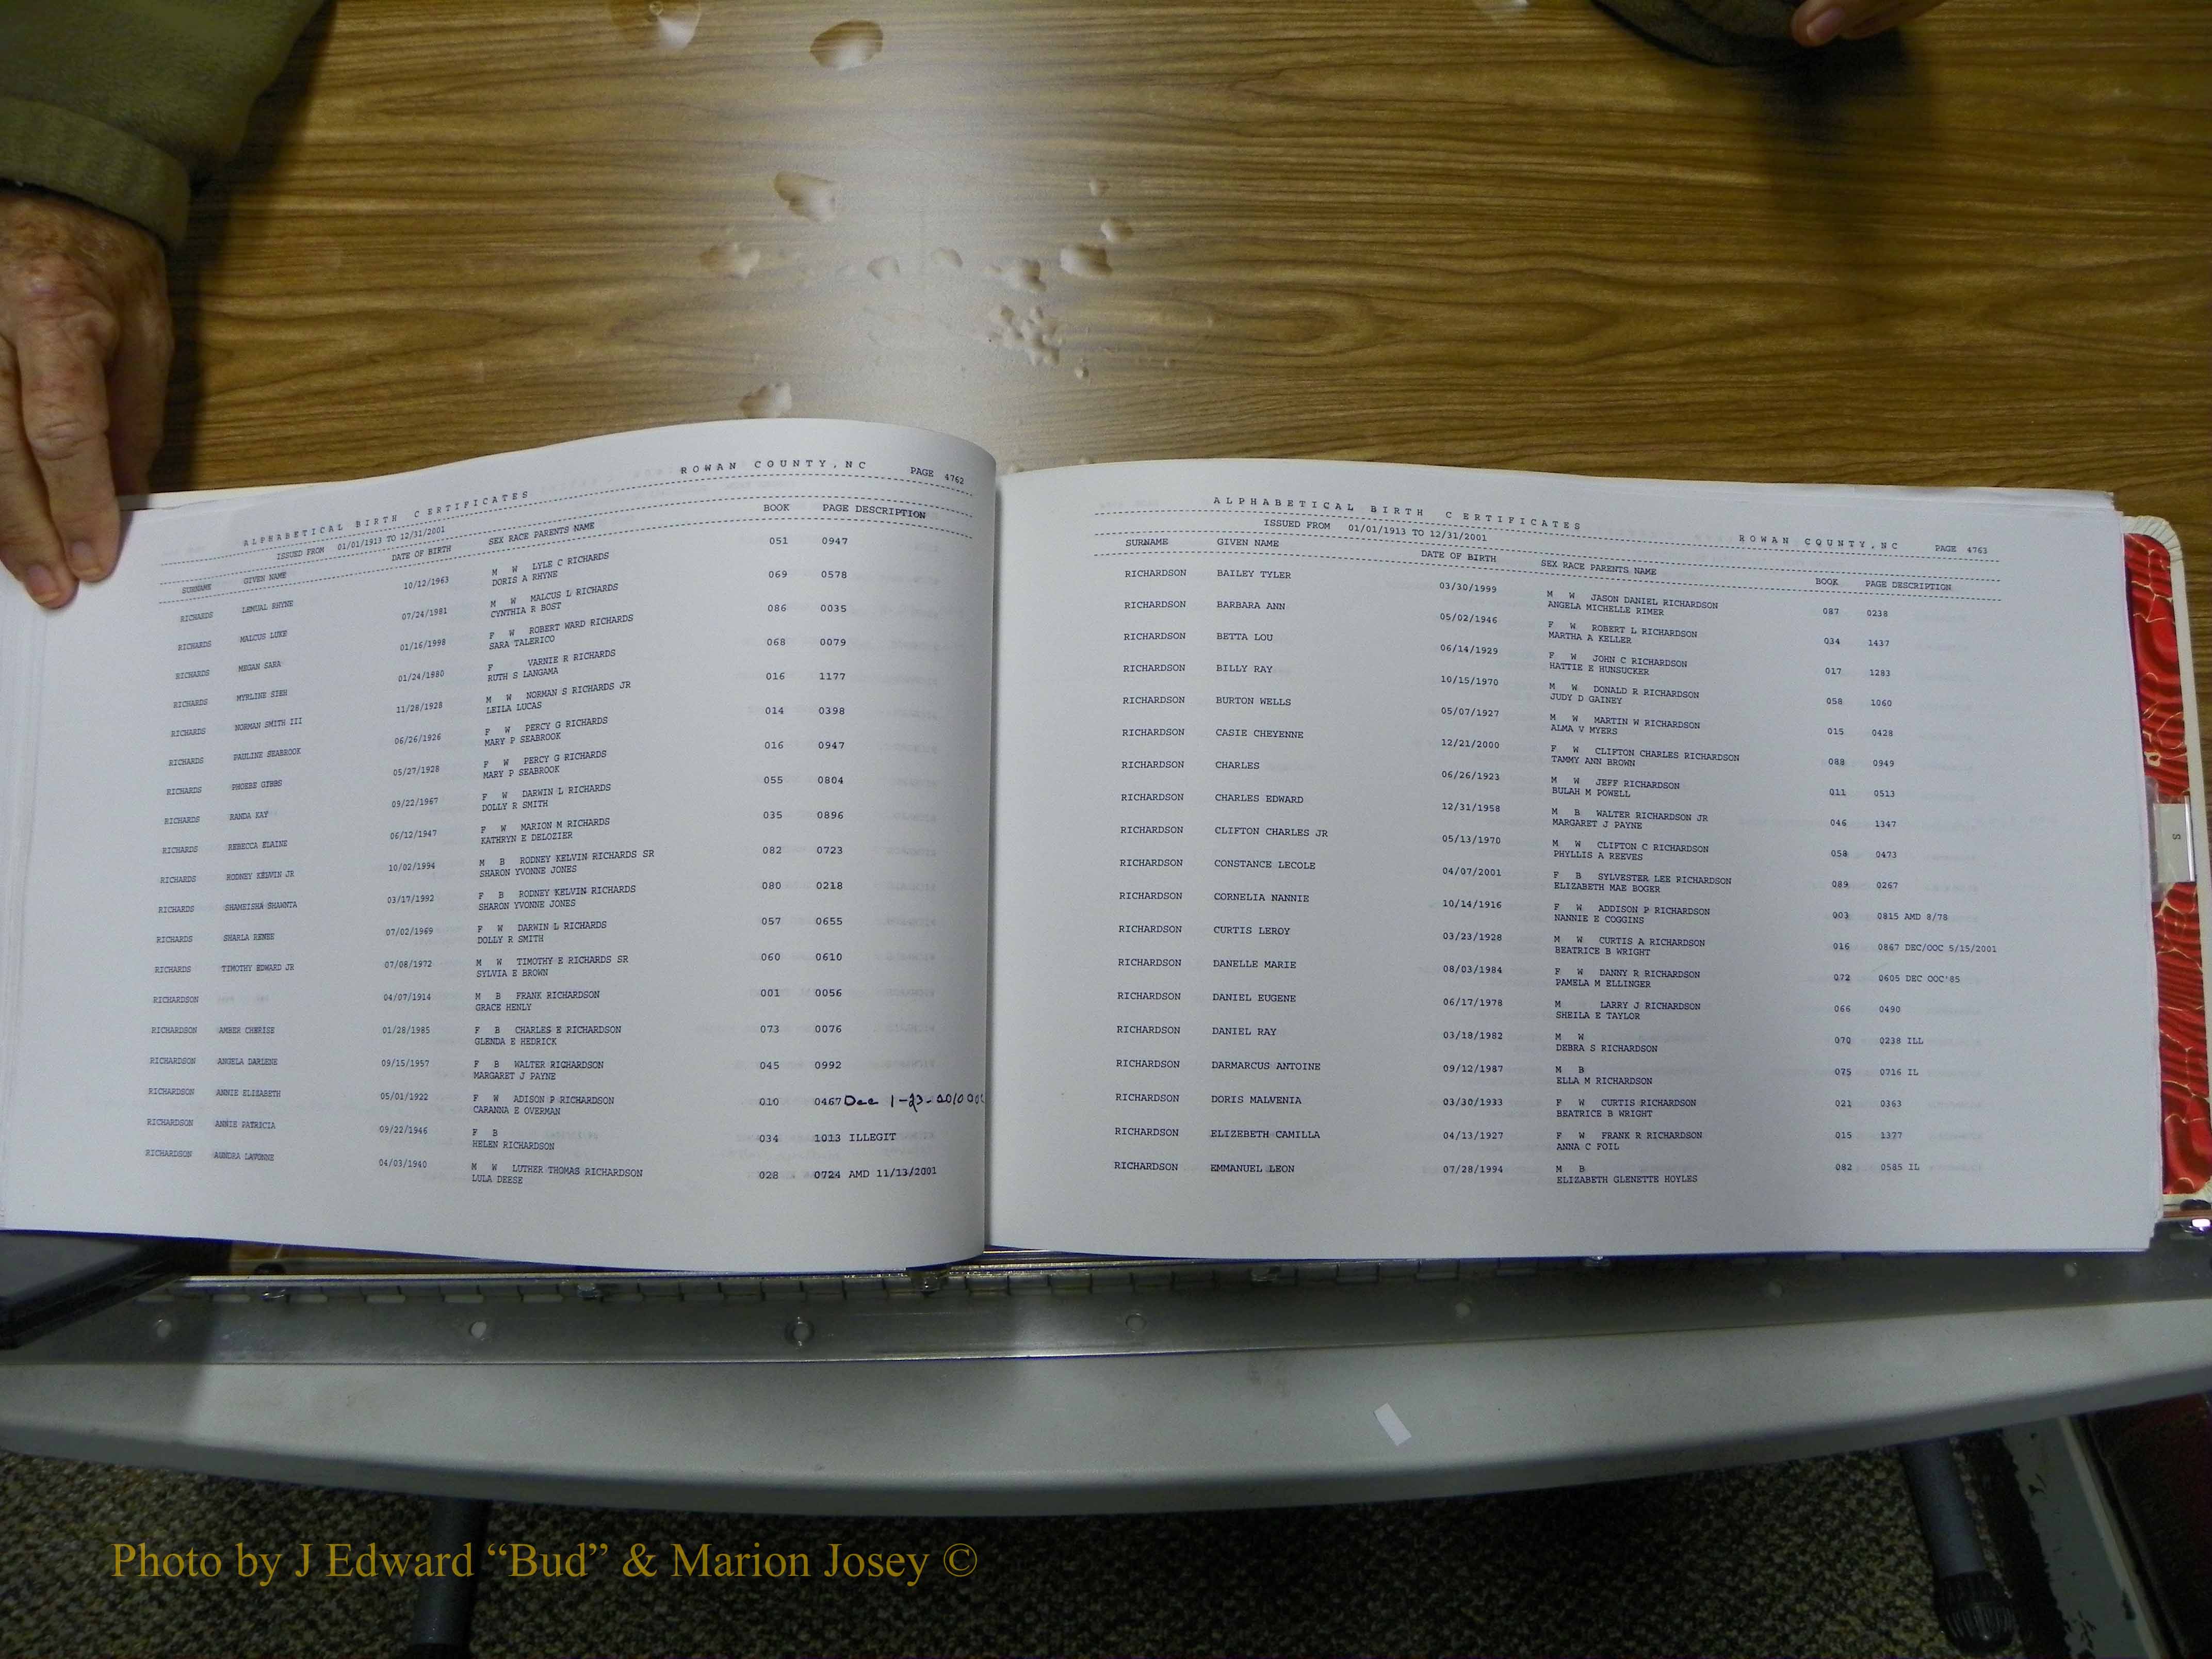 ALPHABETICAL BIRTH CERTIFICATES ROWAN COUNTY, NC PAGE 4762
ISSUED FROM 01/01/1913 TO 12/31/2001
SURNAME GIVEN NAME DATE OF BIRTH SEX RACE PARENTS NAME BOOK PAGE DESCRIPTION
RICHARDS LEMUAL RHYNE 10/12/1963 M W LYLE C RICHARDS 051 0947
DORIS A RHYNE
RICHARDS MALCUS LUKE 07/24/1981 M W MALCUS L RICHARDS 069 0578
CYNTHIA R BOST
RICHARDS MEGAN SARA 01/16/1998 F W ROBERT WARD RICHARDS 086 0035
SARA TALERICO
RICHARDS MYRLINE SIEH 01/24/1980 F VARNIE R RICHARDS 068 0079
RUTH S LANGAMA
RICHARDS NORMAN SMITH III 11/28/1928 M W NORMAN S RICHARDS JR 016 1177
LEILA LUCAS
RICHARDS PAULINE SEABROOK 06/26/1926 F W PERCY G RICHARDS 014 0398
MARY P SEABROOK
RICHARDS PHOEBE GIBBS 05/27/1928 F W PERCY G RICHARDS 016 0947
MARY P SEABROOK
RICHARDS RANDA KAY 09/22/1967 F W DARWIN L RICHARDS 055 0804
DOLLY R SMITH
RICHARDS REBECCA ELAINE 06/12/1947 F W MARION M RICHARDS 035 0896
KATHRYN E DELOZIER
RICHARDS RODNEY KELVIN JR 10/02/1994 M B RODNEY KELVIN RICHARDS SR 082 0723
SHARON YVONNE JONES
RICHARDS SHAMEISHA SHAWNTA 03/17/1992 F B RODNEY KELVIN RICHARDS 080 0218
SHARON YVONNE JONES
RICHARDS SHARLA RENEE 07/02/1969 F W DARWIN L RICHARDS 057 0655
DOLLY R SMITH
RICHARDS TIMOTHY EDWARD JR 07/08/1972 M W TIMOTHY E RICHARDS SR 060 0610
SYLVIA E BROWN
RICHARDSON 04/07/1914 M B FRANK RICHARDSON 001 0056
GRACE HENLY
RICHARDSON AMBER CHERISE 01/28/1985 F B CHARLES E RICHARDSON 073 0076
GLENDA E HEDRICK
RICHARDSON ANGELA DARLENE 09/15/1957 F B WALTER RICHARDSON 045 0992
MARGARET J PAYNE
RICHARDSON ANNIE ELIZABETH 05/01/1922 F W ADISON P RICHARDSON 010 0467 Dec 1-23-2010
CARANNA E OVERMAN
RICHARDSON ANNIE PATRICIA 09/22/1946 F B 034 1013 ILLEGIT
HELEN RICHARDSON
RICHARDSON LAVONNE 04/03/1940 M W LUTHER THOMAS RICHARDSON 028 0724 AMD 11/13/2001
LULA DEESE
ALPHABETICAL BIRTH CERTIFICATES ROWAN COUNTY, NC PAGE 4763
ISSUED FROM 01/01/1913 TO 12/31/2001
SURNAME GIVEN NAME DATE OF BIRTH SEX RACE PARENTS NAME BOOK PAGE DESCRIPTION
RICHARDSON BAILEY TYLER 03/30/1999 M W JASON DANIEL RICHARDSON 087 0238
ANGELA MICHELLE RIMER
RICHARDSON BARBARA ANN 05/02/1946 F W ROBERT L RICHARDSON 034 1437
MARTHA A KELLER
RICHARDSON BETTA LOU 06/14/1929 F W JOHN C RICHARDSON 017 1283
HATTIE E HUNSUCKER
RICHARDSON BILLY RAY 10/15/1970 M W DONALD R RICHARDSON 058 1060
JUDY D GAINEY
RICHARDSON BURTON WELLS 05/07/1927 M W MARTIN W RICHARDSON 015 0428
ALMA V MYERS
RICHARDSON CASIE CHEYENNE 12/21/2000 F W CLIFTON CHARLES RICHARDSON 088 0949
TAMMY ANN BROWN
RICHARDSON CHARLES 06/26/1923 M W JEFF RICHARDSON 011 0513
BULAH M POWELL
RICHARDSON CHARLES EDWARD 12/31/1958 M B WALTER RICHARDSON JR 046 1347
MARGARET J PAYNE
RICHARDSON CLIFTON CHARLES JR 05/13/1970 M W CLIFTON C RICHARDSON 058 0473
PHYLLIS A REEVES
RICHARDSON CONSTANCE LECOLE 04/07/2001 F B SYLVESTER LEE RICHARDSON 089 0267
ELIZABETH MAE BOGER
RICHARDSON CORNELIA NANNIE 10/14/1916 F W ADDISON P RICHARDSON 003 0815 AMD 8/78
NANNIE E COGGINS
RICHARDSON CURTIS LEROY 03/23/1928 M W CURTIS A RICHARDSON 016 0867 DEC/OOC 5/15/2001
BEATRICE B WRIGHT
RICHARDSON DANELLE MARIE 08/03/1984 F W DANNY R RICHARDSON 072 0605 DEC OOC'85
PAMELA M ELLINGER
RICHARDSON DANIEL EUGENE 06/17/1978 M LARRY J RICHARDSON 066 0490
SHEILA E TAYLOR
RICHARDSON DANIEL RAY 03/18/1982 M W 070 0238 ILL
DEBRA S RICHARDSON
RICHARDSON DARMARCUS ANTOINE 09/12/1987 M B 075 0716 IL
ELLA M RICHARDSON
RICHARDSON DORIS MALVENIA 03/30/1933 F W CURTIS RICHARDSON 021 0363
BEATRICE B WRIGHT
RICHARDSON ELIZEBETH CAMILLA 04/13/1927 F W FRANK R RICHARDSON 015 1377
ANNA C FOIL
RICHARDSON EMMANUEL LEON 07/28/1994 M B 082 0585 IL
ELIZABETH GLENETTE HOYLES
S
Photo by J Edward “Bud” & Marion Josey ©